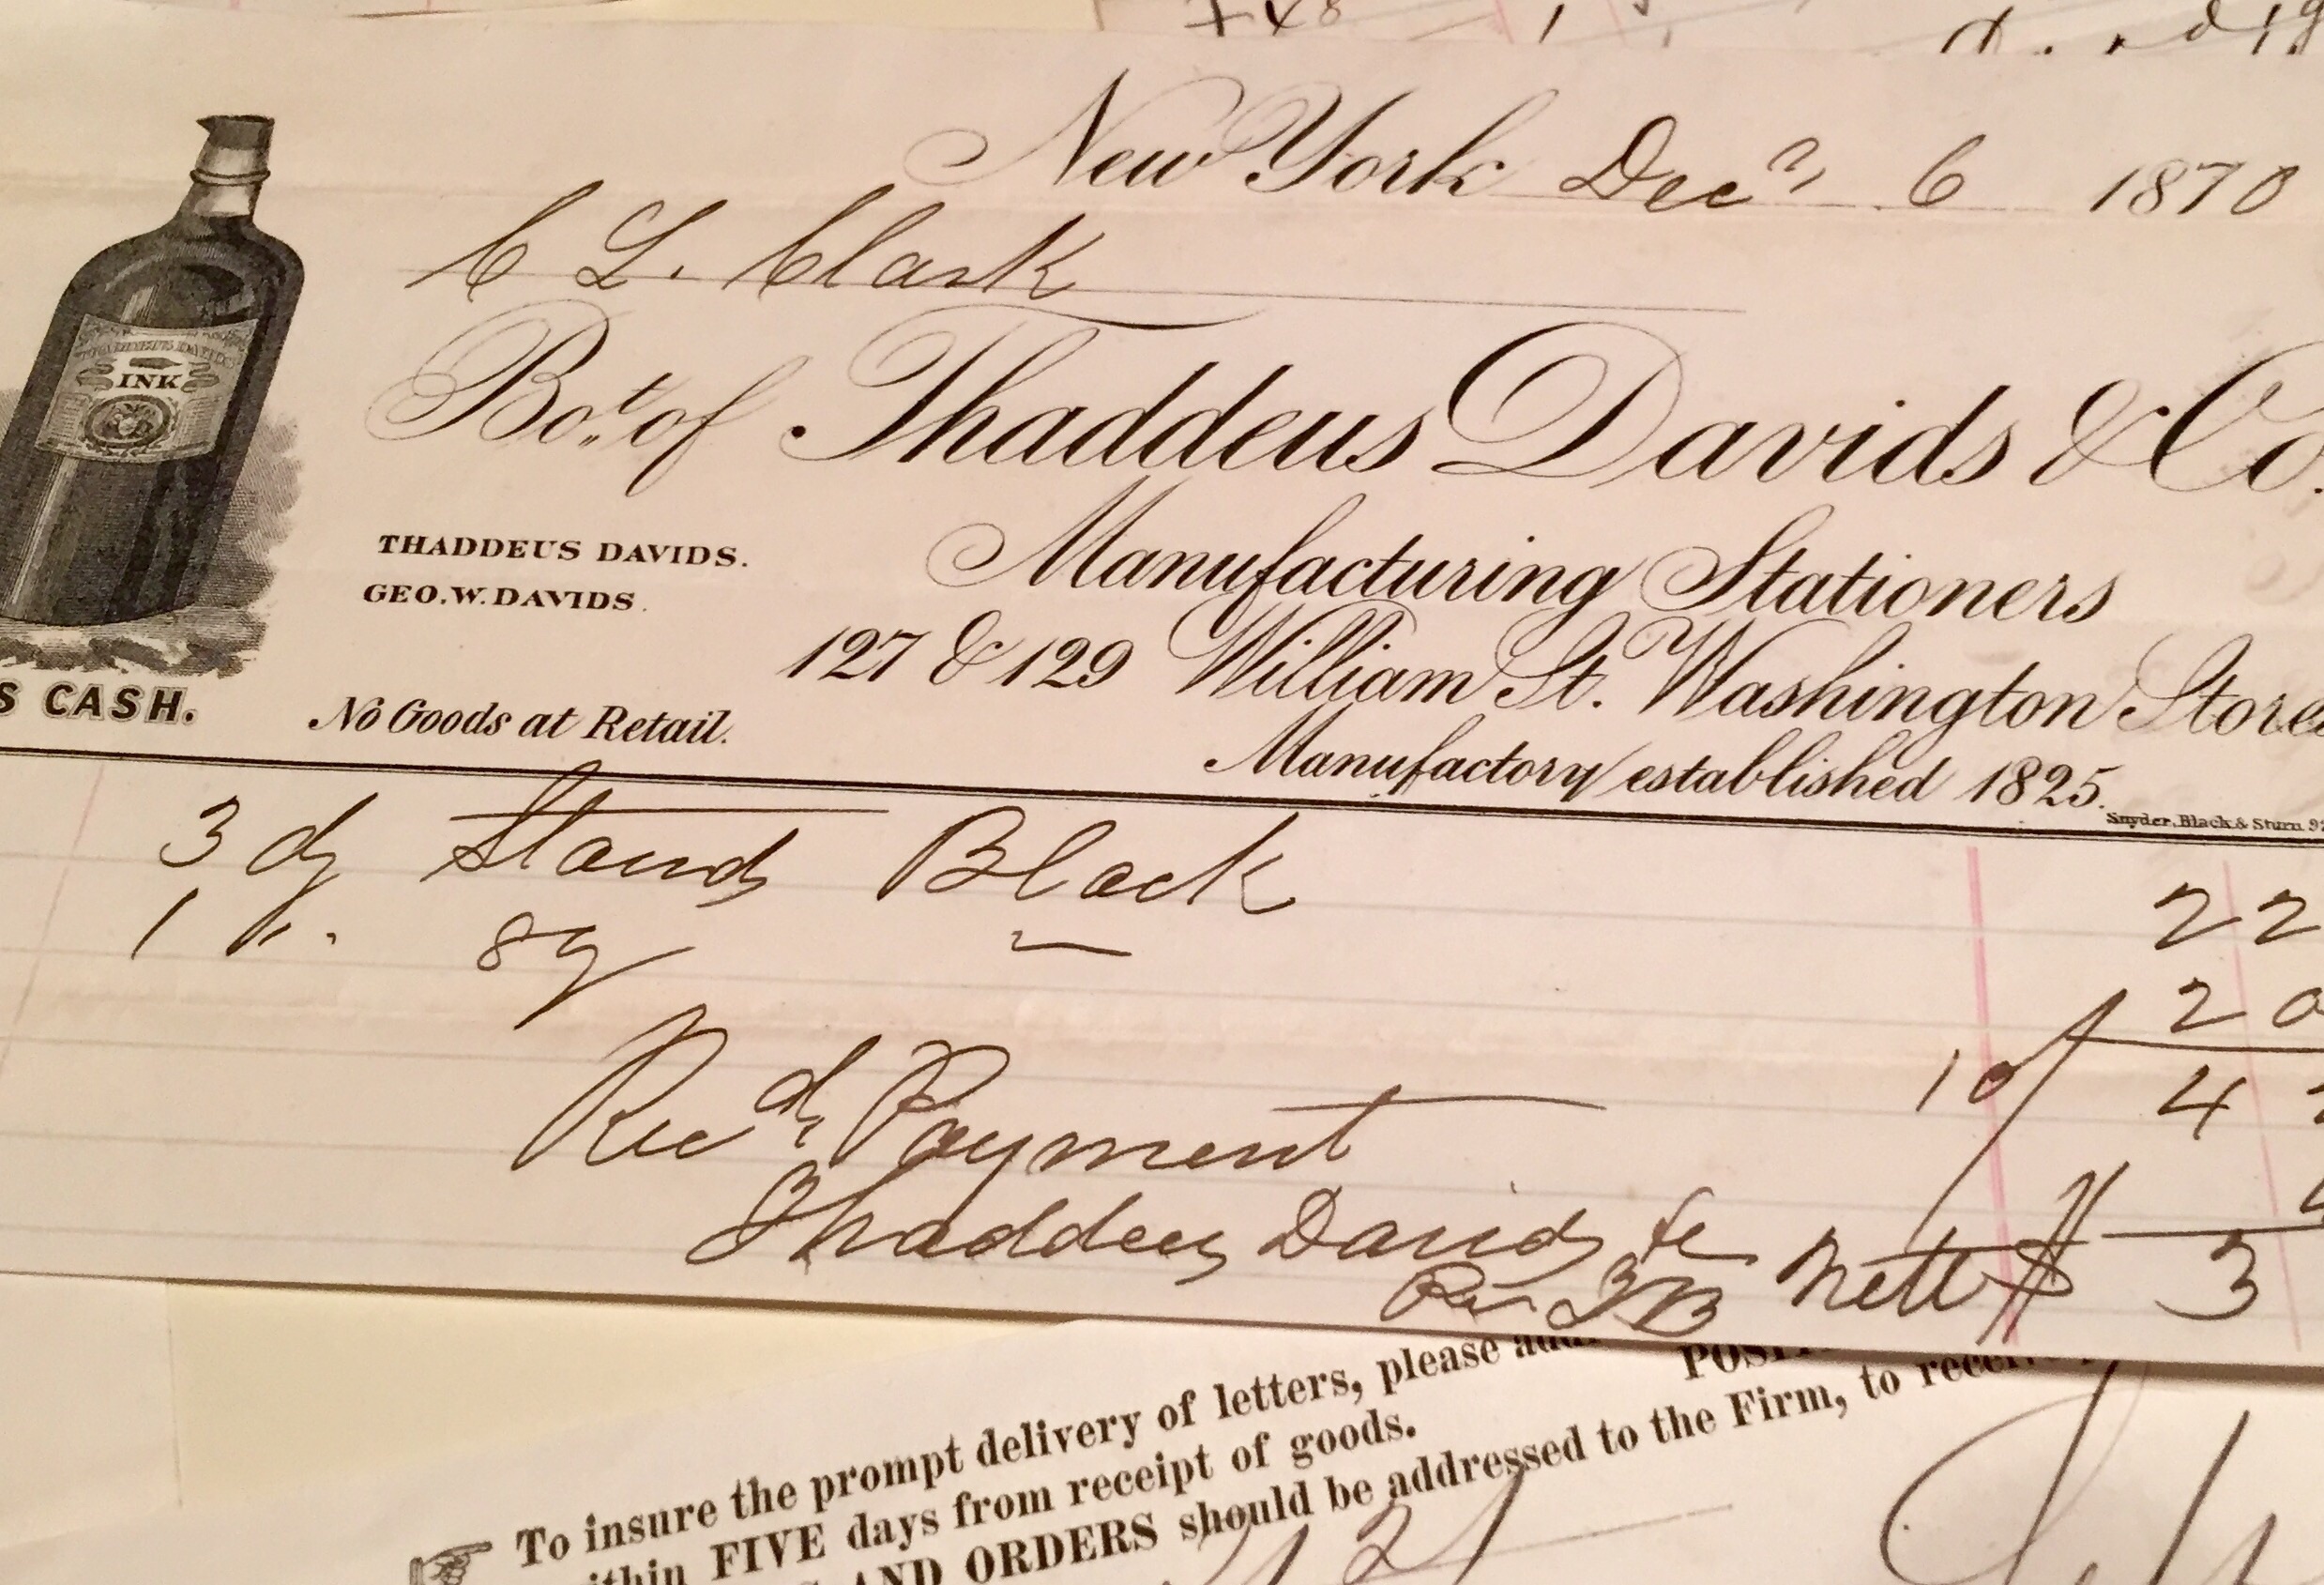 New York Decr 6 1870
C L. Clark
Bot. of Thaddeus Davids & Co.
INK
THADDEUS DAVIDS.
GEO. W. DAVIDS.
Manufacturing Stationers
127 & 129 William St. Washington Stores
S CASH.
No Goods at Retail.
Manufactory established 1825.
Snyder, Black & Sturn. 92
3 dz Stands Black 22
1 8oz 20
10/ 4
Recd Payment
Thaddeus Davids & Co
Per Nett $ 3
To insure the prompt delivery of letters, please
within FIVE days from receipt of goods.
AND ORDERS should be addressed to the Firm, to